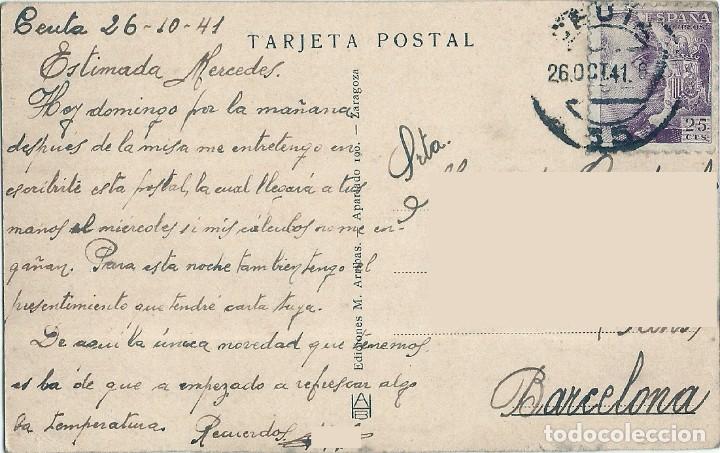 Ceuta 26-10-41
TARJETA POSTAL
Estimada Mercedes.
Hoy domingo por la mañana
después de la misa me entretengo en
escribirte esta postal, la cual llegará a tus
manos el miércoles si mis cálculos no me en-
gañan. Para esta noche tambien tengo el
presentimiento que tendré carta tuya.
De aquí la única novedad que tenemos
es la de que a empezado a refrescar algo
la temperatura. Recuerdos
Ediciones M. Arribas. - Apartado 190. - Zaragoza
ESPAÑA
CORREOS
25
CTS.
CEUTA
26.OCT.41.
Srta.
Barcelona
todocoleccion